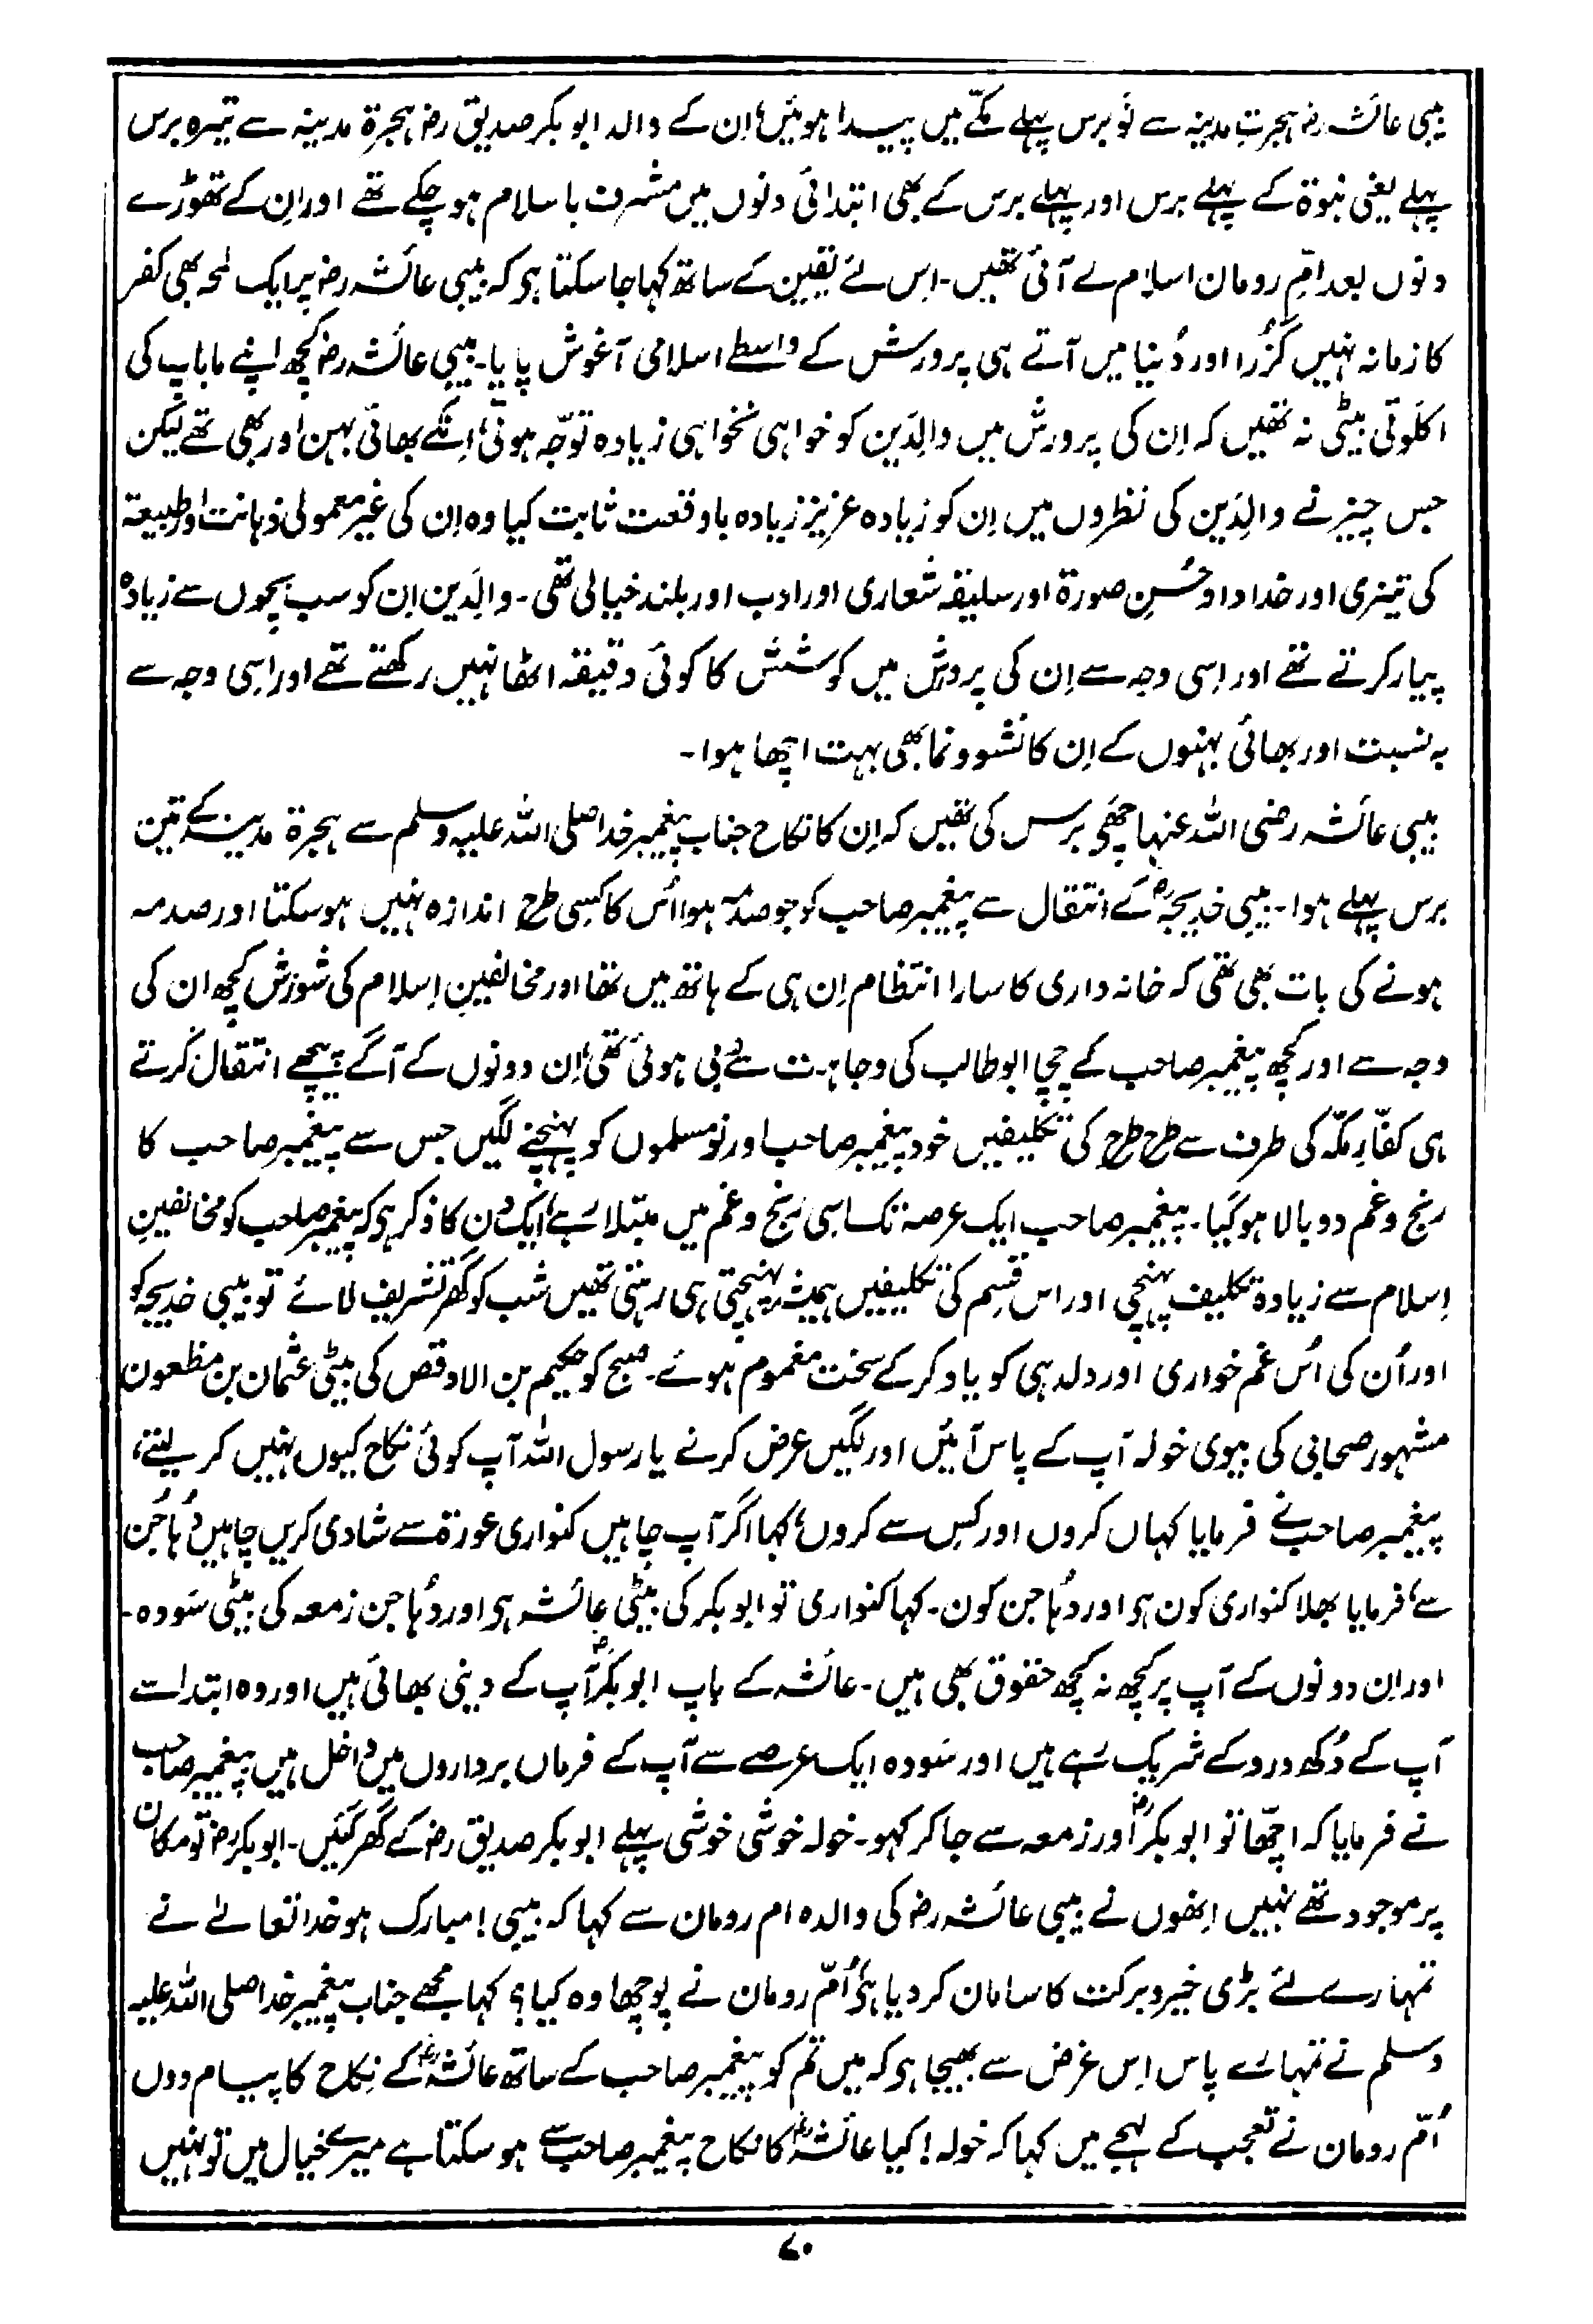 بیبی عائشہ رض ہجرتِ مدینہ سے نَو برس پہلے مکّے میں پیدا ہوئیں، اِن کے والد ابو بکر صدیق رض ہجرۃ مدینہ سے تیرہ برس
پہلے یعنی نبوۃ کے پہلے برس اور پہلے برس کے بھی ابتدائی دنوں میں مشرف با سلام ہو چکے تھے اور اِن کے تھوڑے
دنوں بعد امِّ رومان اسلام لے آئی تھیں۔ اِس لئے یقین کے ساتھ کہا جا سکتا ہی کہ بیبی عائشہ رض پر ایک لمحہ بھی کفر
کا زمانہ نہیں گزُرا اور دُنیا میں آتے ہی پرورش کے واسطے اسلامی آغوش پایا۔ بیبی عائشہ رض کچھ اپنے ماباپ کی
اکلوتی بیٹی نہ تھیں کہ اِن کی پرورش میں والِدَین کو خواہی نخواہی زیادہ توجّہ ہوتی، اِنکے بھائی بہن اور بھی تھے لیکن
جس چیز نے والِدَین کی نظروں میں اِن کو زیادہ عزیز زیادہ باوقعت ثابت کیا وہ اِن کی غیر معمولی ذہانت اور طبیعۃ
کی تیزی اور خداداد حُسنِ صورۃ اور سلیقہ شعاری اور ادب اور بلند خیالی تھی۔ والِدَین اِن کو سب بچوں سے زیادہ
پیار کرتے تھے اور اِسی وجہ سے اِن کی پرورش میں کوشش کا کوئی دقیقہ اٹھا نہیں رکھتے تھے اور اِسی وجہ سے
بہ نسبت اور بھائی بہنوں کے اِن کا نشو و نما بھی بہت اچھا ہوا۔
بیبی عائشہ رضی اللہ عنہا چھٹے برس کی تھیں کہ اِن کا نکاح جناب پیغمبر خدا صلی اللہ علیہ وسلم سے ہجرۃ مدینہ کے تین
برس پہلے ہوا۔ بیبی خدیجہؓ کے انتقال سے پیغمبر صاحب کو جو صدمہ ہوا اُس کا کسِی طرح اندازہ نہیں ہو سکتا اور صدمہ
ہونے کی بات بھی تھی کہ خانہ داری کا سارا انتظام اِن ہی کے ہاتھ میں تھا اور مخالفینِ اِسلام کی شورش کچھ ان کی
وجہ سے اور کچھ پیغمبر صاحب کے چچا ابو طالب کی وجاہت سے دبی ہوئی تھی، اِن دونوں کے آگے پیچھے انتقال کرتے
ہی کفّارِ مکّہ کی طرف سے طرح طرح کی تکلیفیں خود پیغمبر صاحب اور نو مسلموں کو پہنچنے لگیں جس سے پیغمبر صاحب کا
رنج و غم دوبالا ہو گیا۔ پیغمبر صاحب ایک عرصۃ تک اسی رنج و غم میں مبتلا رہے، ایک دن کا ذکر ہی کہ پیغمبر صاحب کو مخالفینِ
اِسلام سے زیادۃ تکلیف پہنچی اور اس قِسم کی تکلیفیں ہمیشہ پہنچتی ہی رہتی تھیں شب کو گھر تشریف لائے تو بیبی خدیجہ کو
اور اُن کی اُس غم خواری اور دلدہی کو یاد کر کے سخت مغموم ہوئے۔ صبح کو حکیم بن الاوقص کی بیٹی عثمان بن مظعون
مشہور صحابی کی بیوی خولہ آپ کے پاس آئیں اور لگیں عرض کرنے یا رسول اللہ آپ کوئی نکاح کیوں نہیں کر لیتے،
پیغمبر صاحب نے فرمایا کہاں کروں اور کِس سے کروں، کہا اگر آپ چاہیں کنواری عورۃ سے شادی کریں چاہیں دُہاجُن
سے، فرمایا بھلا کنواری کون ہی اور دُہاجن کون۔ کہا کنواری تو ابو بکر کی بیٹی عائشہ ہی اور دُہاجن زمعہ کی بیٹی سَودہ۔
اور اِن دونوں کے آپ پر کچھ نہ کچھ حقوق بھی ہیں۔ عائشہ کے باپ ابو بکرؓ آپ کے دینی بھائی ہیں اور وہ ابتدا سے
آپ کے دُکھ درد کے شریک رہے ہیں اور سَودہ ایک عرصے سے آپ کے فرماں برداروں میں داخل ہیں پیغمبر صاحب
نے فرمایا کہ اچّھا تو ابو بکرؓ اور زمعہ سے جا کر کہو۔ خولہ خوشی خوشی پہلے ابو بکر صدیق رض کے گھر گئیں۔ ابو بکر رض تو مکان
پر موجود تھے نہیں اِنھوں نے بیبی عائشہ رض کی والدہ ام رومان سے کہا کہ بیبی! مبارک ہو خدا تعالےٰ نے
تمہارے لئے بڑی خیر و برکت کا سامان کر دیا ہی، اُمّ رومان نے پوچھا وہ کیا؟ کہا مجھے جناب پیغمبر خدا صلی اللہ علیہ
وسلم نے تمہارے پاس اِس غرض سے بھیجا ہی کہ میں تم کو پیغمبر صاحب کے ساتھ عائشہؓ کے نِکاح کا پیام دوں
اُمّ رومان نے تعجب کے لہجے میں کہا کہ خولہ! کیا عائشہؓ کا نکاح پیغمبر صاحب سے ہو سکتا ہے میرے خیال میں تو نہیں
۷۰